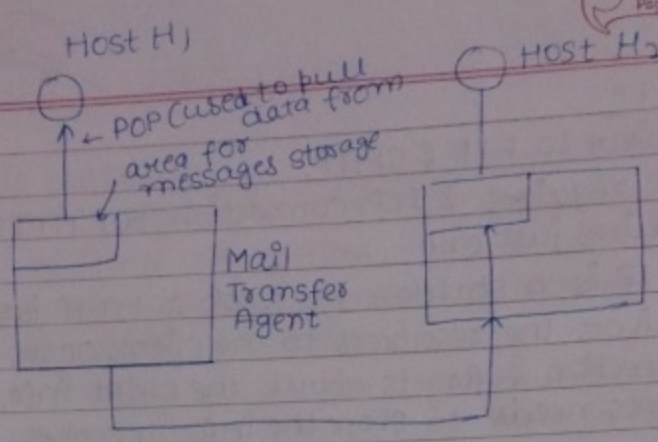 Host H1
Host H2
POP (used to pull
data from
area for
messages storage
Mail
Transfer
Agent